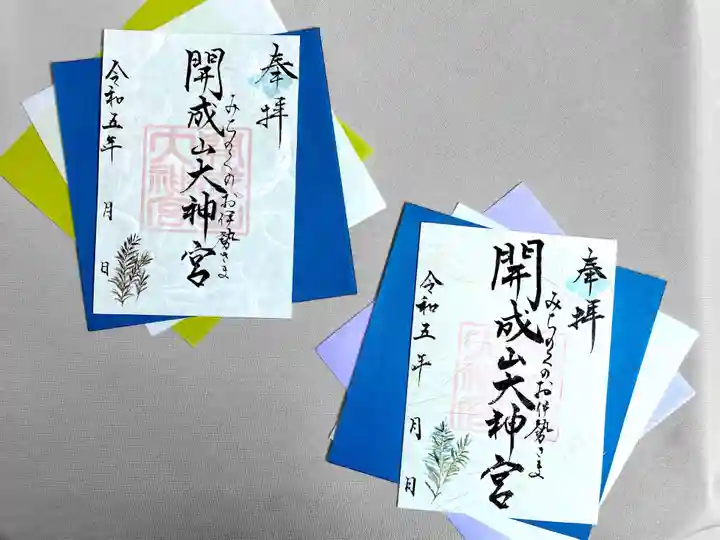 奉拝
みちのくのお伊勢さま
開成山大神宮
令和五年 月 日
奉拝
みちのくのお伊勢さま
開成山大神宮
令和五年 月 日